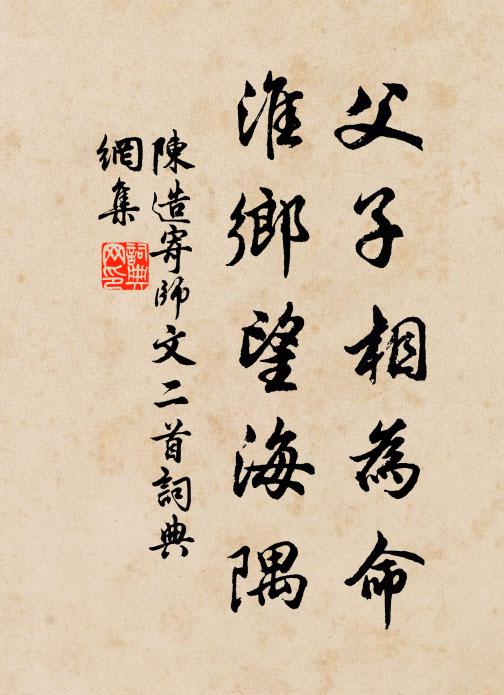 父子相為命
淮鄉望海隅
陳造寄師文二首詞典
網集
詞典
网印